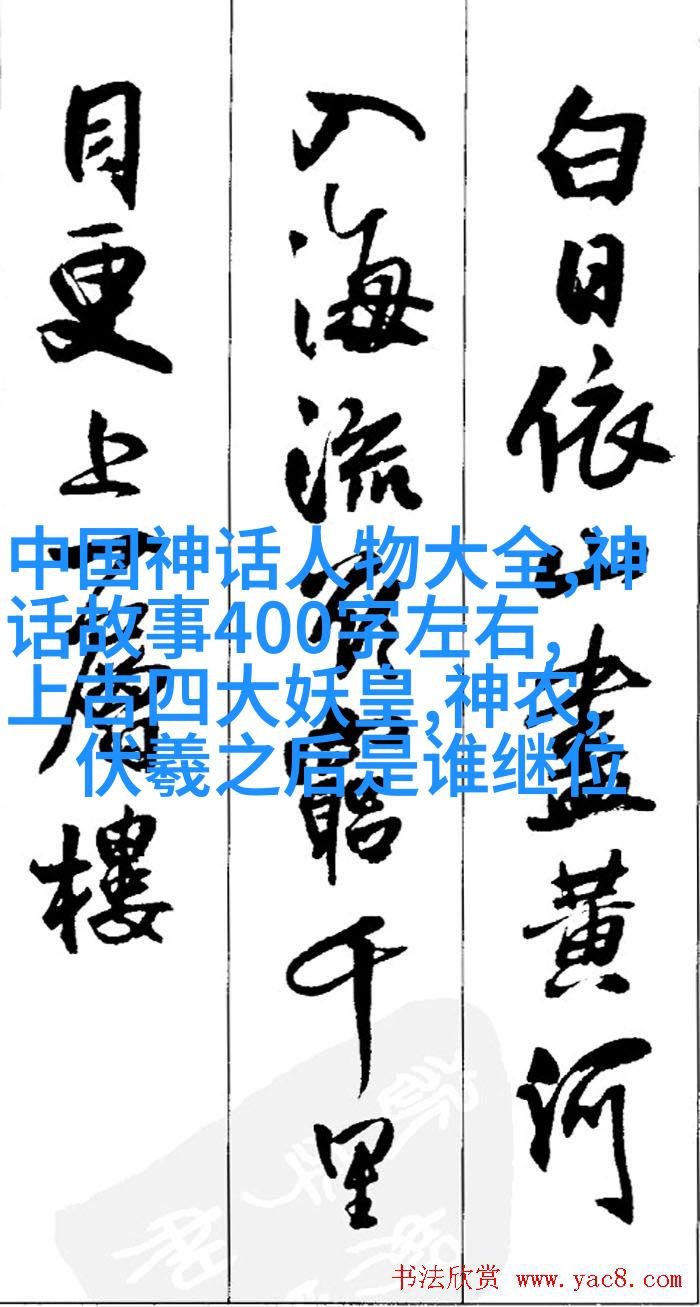 白日依山盡黄河
入海流欲窮千里
目更上一層樓
中国神话人物大全,神
话故事400字左右,
上古四大妖皇,神农,
伏羲之后是谁继位
书法欣赏 www.yac8.com